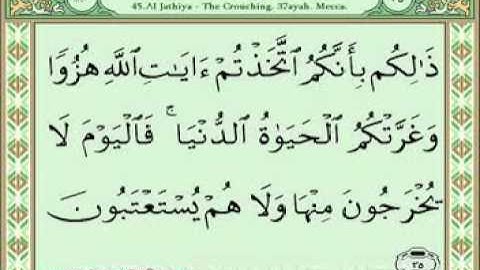 45.Al Jathiya - The Crouching. 37ayah. Mecca.
ذَٰلِكُم بِأَنَّكُمُ ٱتَّخَذْتُمْ ءَايَـٰتِ ٱللَّهِ هُزُوًا
وَغَرَّتْكُمُ ٱلْحَيَوٰةُ ٱلدُّنْيَا ۚ فَٱلْيَوْمَ لَا
يُخْرَجُونَ مِنْهَا وَلَا هُمْ يُسْتَعْتَبُونَ
٣٥